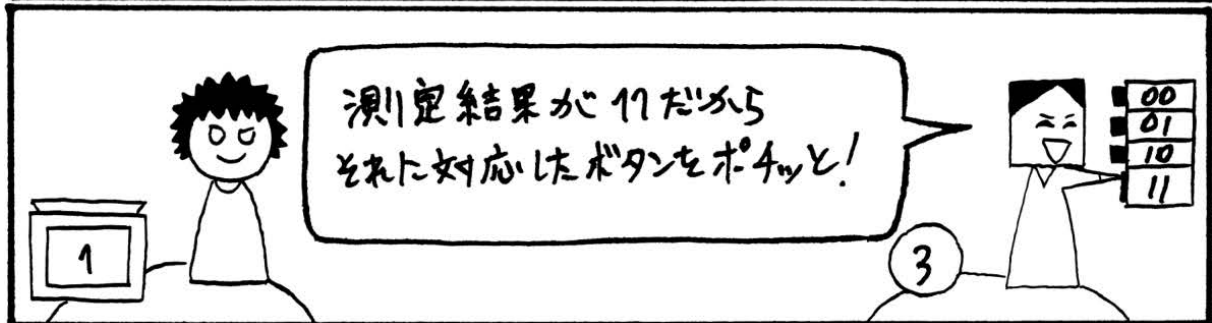 測定結果が11だから
それに対応したボタンをポチッと!
00
01
10
11
1
3